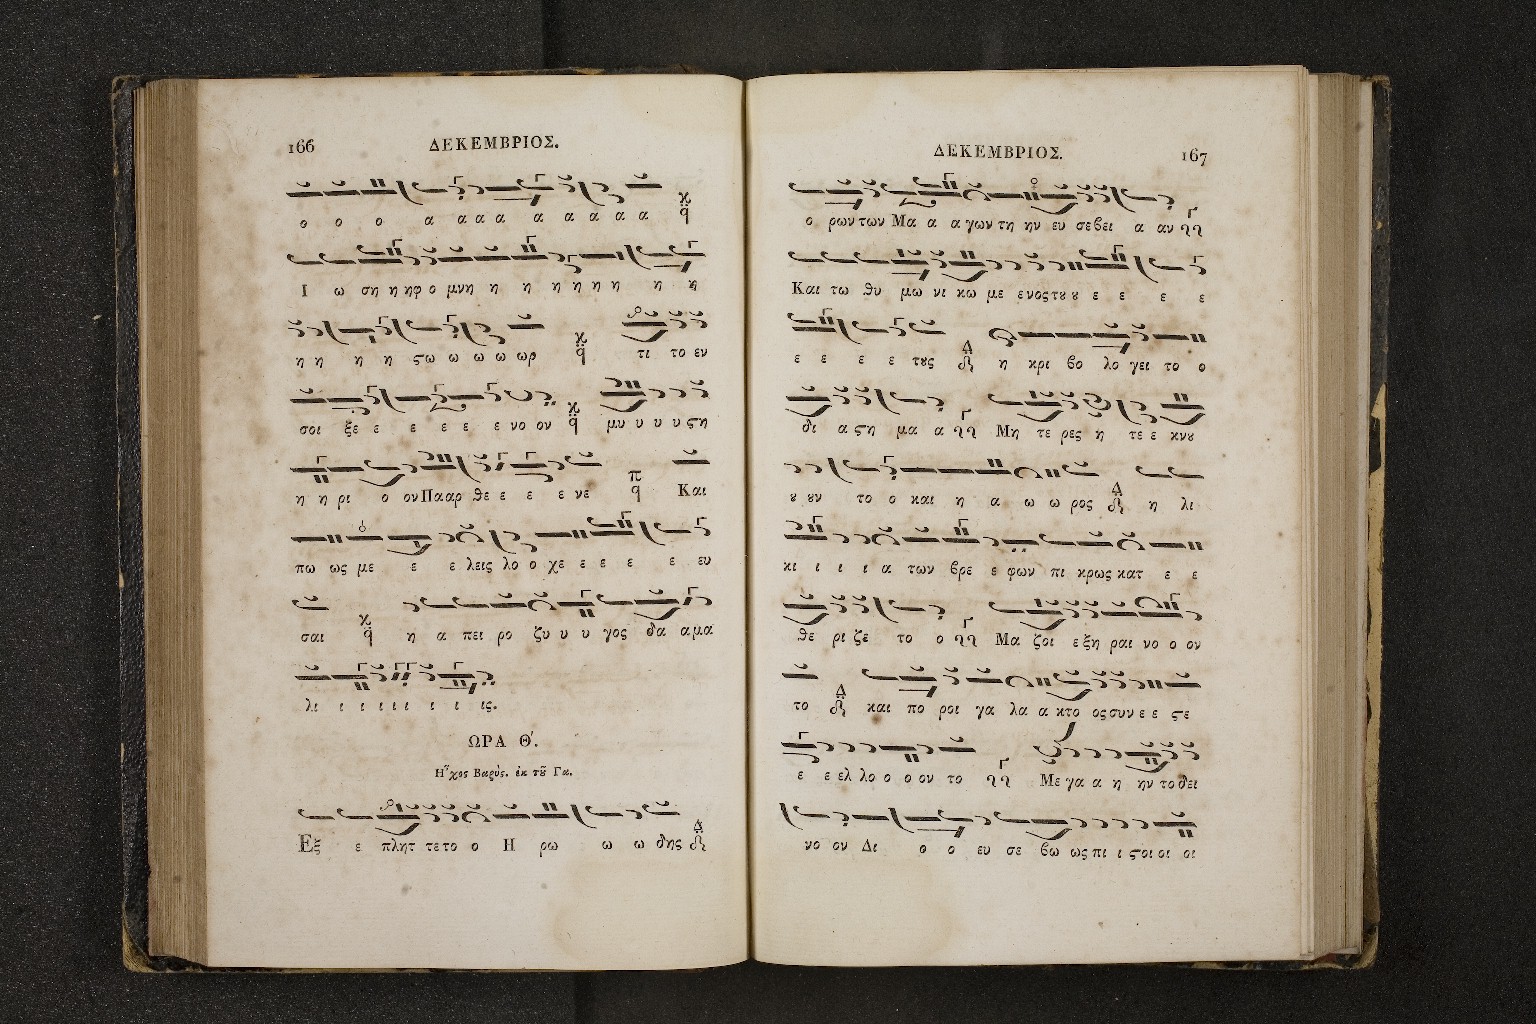 166
ΔΕΚΕΜΒΡΙΟΣ.
ο ο ο α α α α α α α α α
Ι ω ση η ηφ ο μνη η η η η η η η η
η η η η ϛω ω ω ω ωρ τι το εν
σοι ξε ε ε ε ε ε νο ον μυ υ υ υ ϛη
η η ρι ο ον Πααρ θε ε ε ε νε Και
πω ως με ε ε λεις λο ο χε ε ε ε ε ευ
σαι η α πει ρο ζυ υ υ γος δα αμα
λι ι ι ι ι ι ι ις.
ΩΡΑ Θ'.
Ἦχος Βαρὺς. ἐκ τȣ͂ Γα.
Εξ ε πλητ τε το ο Η ρω ω ω δης
ΔΕΚΕΜΒΡΙΟΣ.
167
ο ρων των Μα α α γων τη ην ευ σε βει α αν
Και τω θυ μω νι κω με ενος τȣ ȣ ε ε ε ε
ε ε ε ε τȣς η κρι βο λο γει το ο
δι α ϛη μα α Μη τε ρες η τε ε κνȣ
ȣ ȣν το ο και η α ω ω ρος η λι
κι ι ι ι α των βρε ε φων πι κρως κατ ε ε
θε ρι ζε το ο Μα ζοι ε ξη ραι νο ο ον
το και πο ροι γα λα α κτο ος συν ε ε ϛε
ε ε ελ λο ο ο ον το Με γα α η ην το δει
νο ον Δι ο ο ευ σε βω ως πι ι ϛοι οι οι